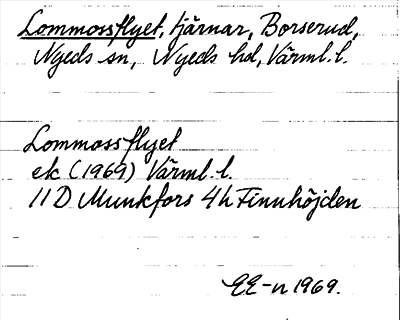 Lommossflyet, tjärnar, Borserud,
Nyeds sn, Nyeds hd, Värml. l.
Lommossflyet
ek (1969) Värml. l.
11 D Munkfors 4 h Finnhöjden
EE-n 1969.